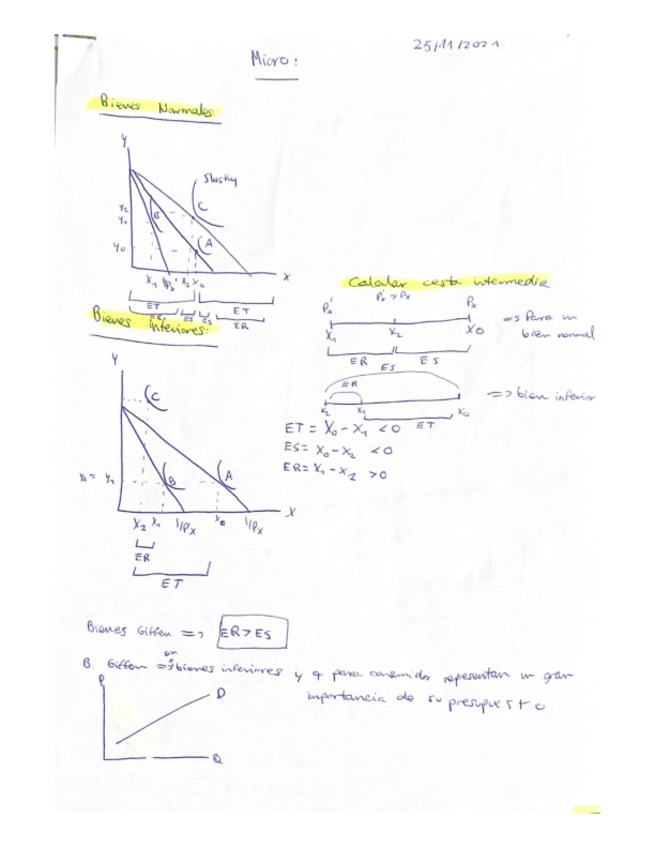 25/11/2021
Micro:
Bienes Normales:
Y
Slutsky
C
Y₂
Y₁
B
Y₀
A
X₁ I/Px' X₂ X₀
X
ET
ET
ES
ES
ER
Bienes inferiores:
Calcular cesta intermedia
Px' > Px
Px'
Px
X₁
X₂
X₀
=> Para un
bien normal
ER
ES
ES
ER
=> bien inferior
X₂
X₁
X₀
ET
ET = X₀ - X₁ < 0
ES = X₀ - X₂ < 0
ER = X₁ - X₂ > 0
Y
C
Y₀ = Y₁
B
A
X₂ X₁ I/Px' X₀ I/Px
X
ER
ET
Bienes Giffen => ER > ES
B. Giffen => son bienes inferiores y q para consumidor representan un gran
importancia de su presupuesto
P
D
Q